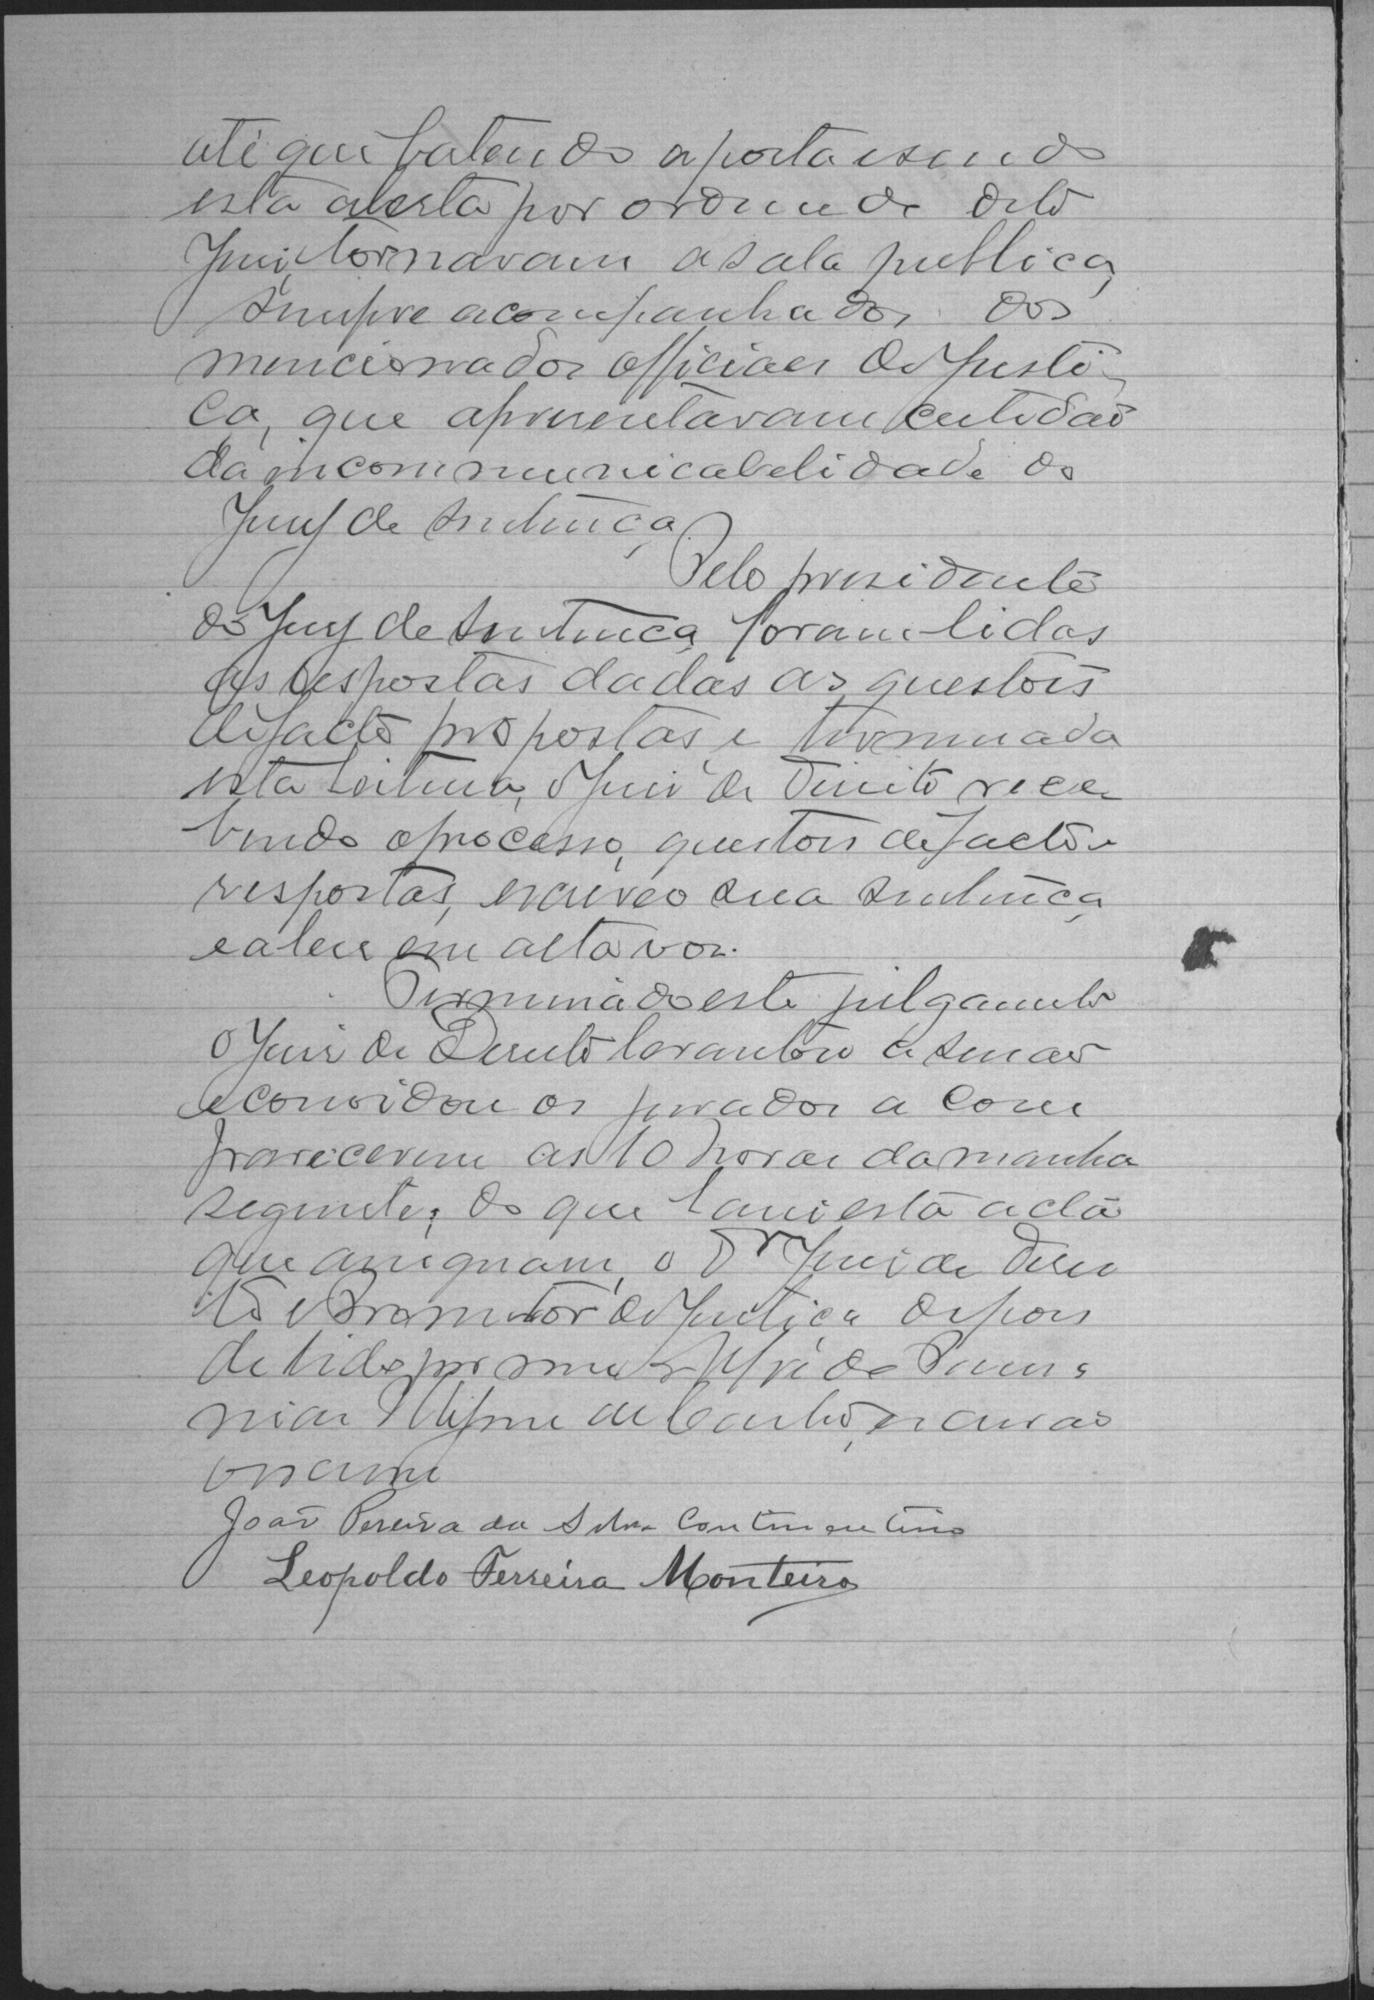 até que batendo a porta e sendo
esta aberta por ordem do dito
Juiz, tornavam a sala publica,
sempre acompanhados dos
mencionados officiaes de Justi-
ça, que apresentavam certidão
da incommunicabelidade do
Jury de sentença.
Pelo presidente
do Jury de sentença foram lidas
as respostas dadas as questões
de facto propostas, e terminada
esta leitura, o Juiz de Direito rece-
bendo o processo, questões de facto e
respostas, escreveo sua sentença
e a leu em alta voz.
Terminado este julgamento
o Juiz de Direito levantou a sessão
e convidou os jurados a com
parecerem as 10 horas da manha
seguinte; do que lavrei esta acta
que assignam, o Dr Juiz de Direi
to e Promotor de Justiça depois
de lida por mim
de Castro, escrivão
o escrevi
João Pereira da Silva Continentino
Leopoldo Ferreira Monteiro